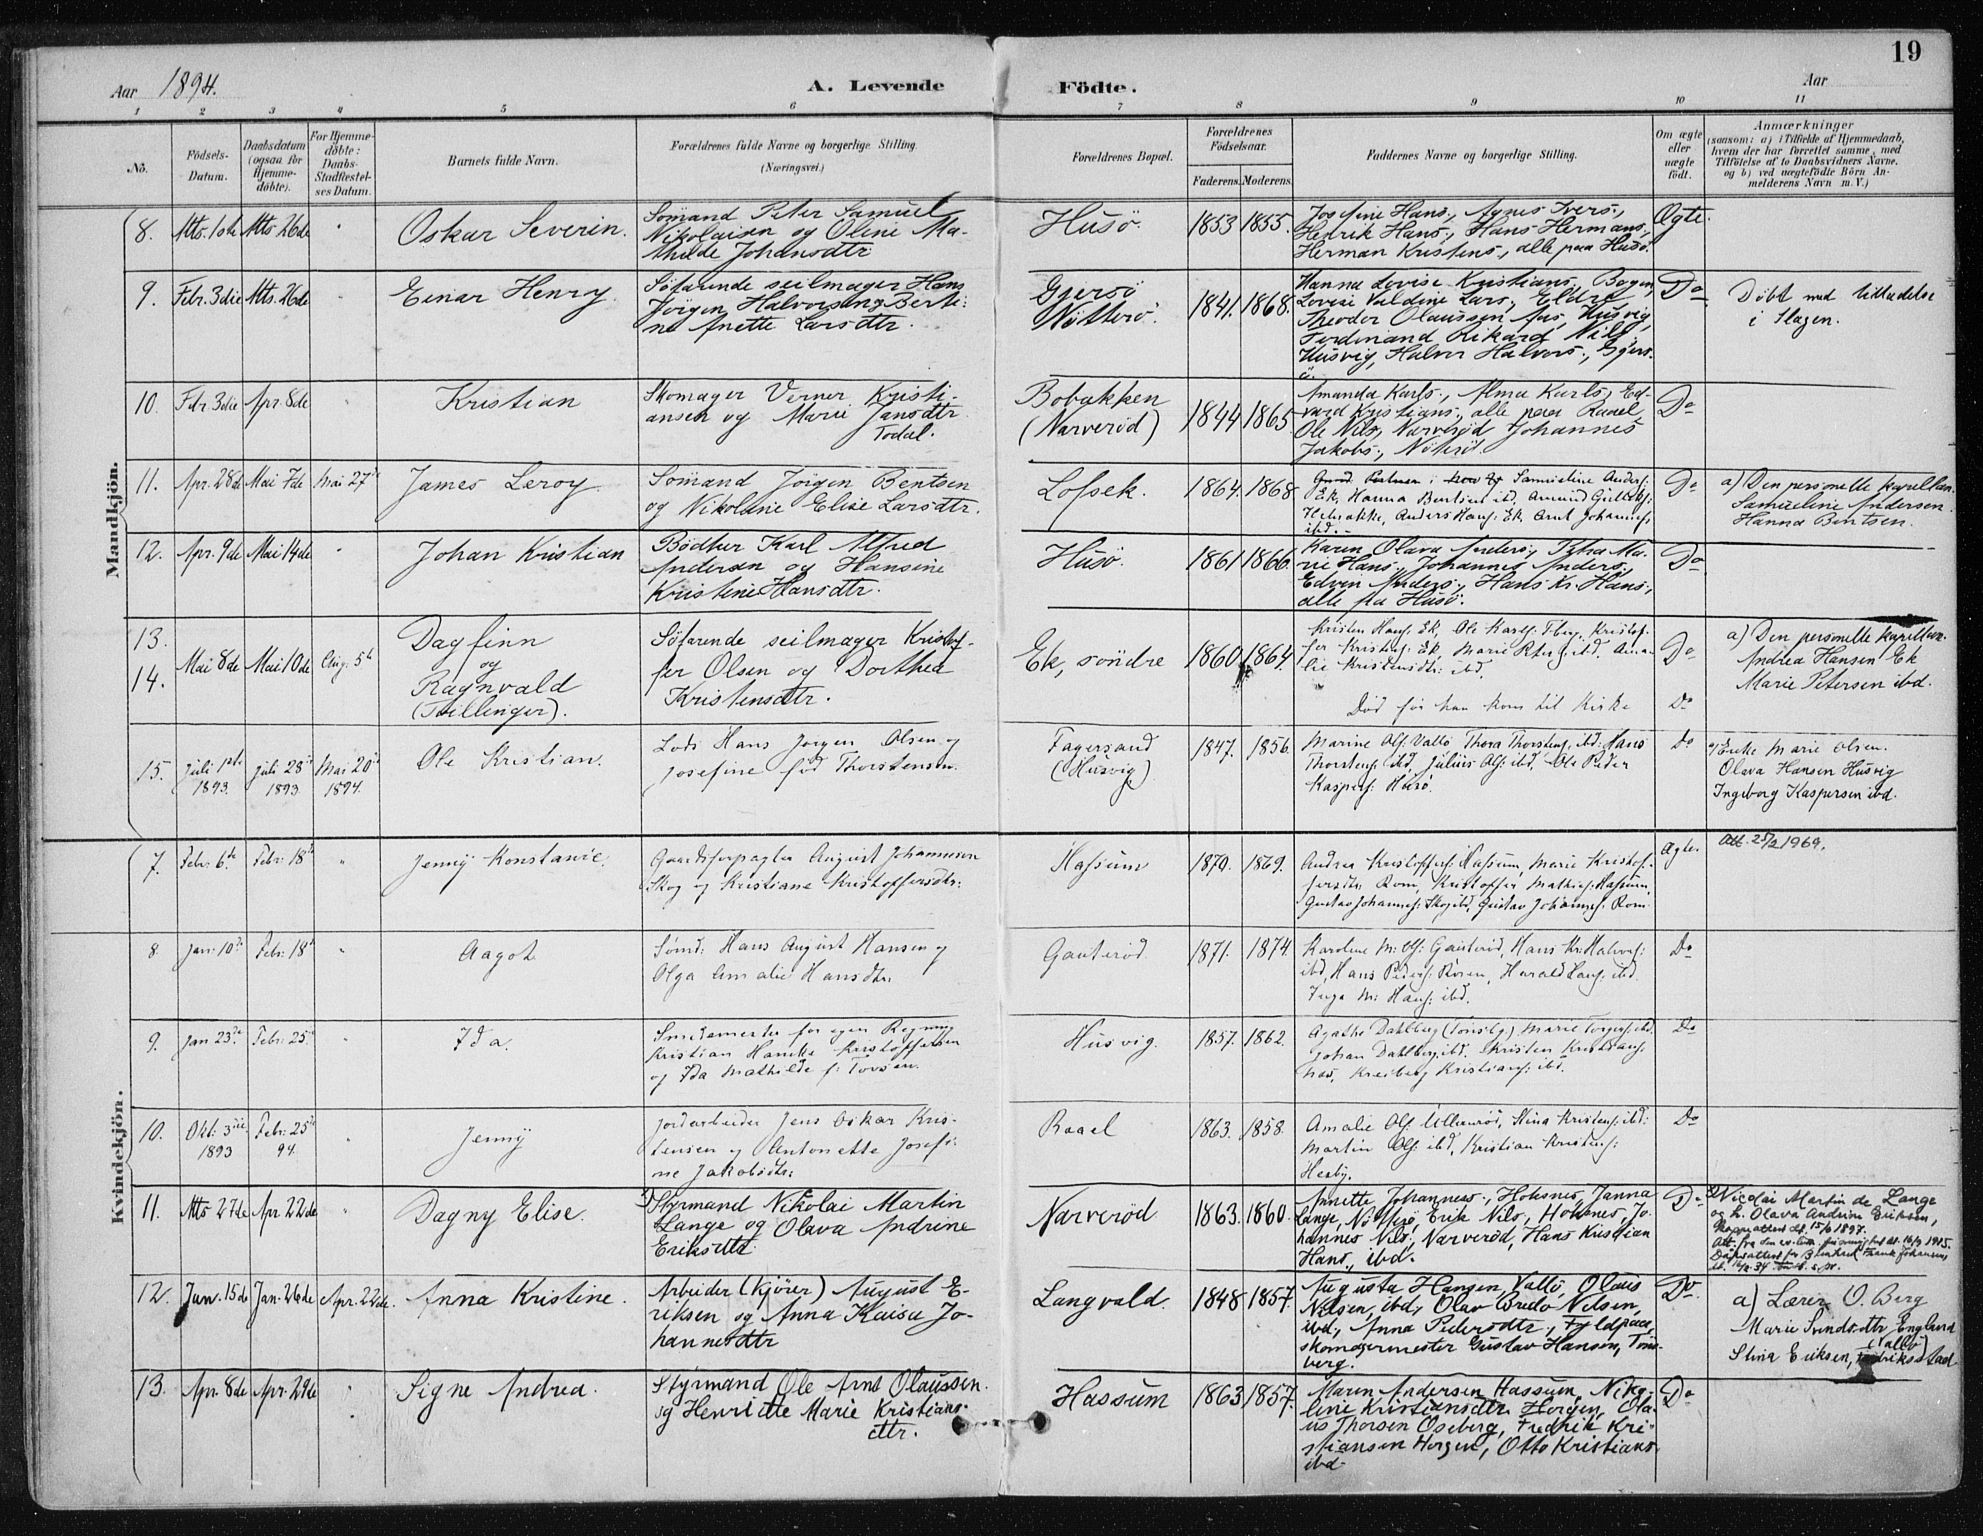 19
Aar 1894.
A. Levende Födte.
Aar
1 2 3 4 5 6 7 8 9 10 11
No.
Födsels-Datum.
Daabsdatum (ogsaa för Hjemmedöbte).
For Hjemmedöbte: Daabs-Stadfæstelses Datum.
Barnets fulde Navn.
Forældrenes fulde Navne og borgerlige Stilling. (Næringsvei.)
Forældrenes Bopæl.
Forældrenes Födselsaar.
Faderens. Moderens.
Faddernes Navne og borgerlige Stilling.
Om ægte eller uægte födt.
Anmærkninger
(saasom: a) i Tilfælde af Hjemmedaab,
hvem der har forrettet samme, med
Tilföielse af to Daabsvidners Navne.
og b) ved uægtefödte Börn An-
melderens Navn m. V.)
Mandkjön.
8. Mts. 1ste Mts. 26de " Oskar Severin.
Sömand Peter Samuel
Nikolaisen og Oline Ma-
thilde Johansdtr
Husö. 1853 1855.
Josefine Hans., Agnes Ivers.,
Henrik Hans., Hans Hermans.,
Herman Kristens., alle paa Husö.
Ægte.
9. Febr. 3die Mts. 26de " Einar Henry.
Söfarende seilmager Hans
Jörgen Halvorsen og Berti-
ne Anette Larsdtr.
Gjersö
Nötterö.
1841. 1868.
Hanna Lovise Kristians., Bogen,
Lovise Valdine Lars.,
Theodor Olaussen Aas, Husvig,
Ferdinand Rikard Nils.,
Husvig, Halvor Halvors., Gjers-
ö.
Do
Döbt med tilladelse
i Slagen.
10. Febr. 3die Apr. 8de " Kristian
Skomager Verner Kristi-
ansen og Marie Jansdtr
Todal.
Bobakken
(Narveröd)
1844 1865
Amanda Karls., Alma Karls., Ed-
vard Kristians., alle paa Raael,
Ole Nils., Narveröd Johannes
Jakobs.,
Do
11. Apr. 28de Mai 7de Mai 27de James Leroy.
Sömand Jörgen Bentsen
og Nikoline Elise Larsdtr.
Lofsek. 1864. 1868.
Samueline Anders:
Ek, Hanna Bentsen ibd, Amund
Anders Hans: Ek, Arnt Johannes:
ibd.
Do
a) Den personelle kapellan.
Samueline Andersen
Hanna Bentsen.
12. Apr. 9de Mai 14de " Johan Kristian
Bödker Karl Alfred
Andersen og Hansine
Kristine Hansdtr.
Husö. 1861 1866.
Karen Olava Anders., Petra Ma-
rie Hans., Johannes Anders.,
Edvin Anders., Hans Kr. Hans.,
alle paa Husö.
Do
13.
14.
Mai 8de Mai 10de Aug. 5te
Dagfinn
og
Ragnvald
(Tvillinger).
Söfarende seilmager Kristof-
fer Olsen og Dorthea
Kristensdtr.
Ek, söndre 1860 1864.
Kristen Hans: Ek, Ole Karls: Tbrg, Kristof-
fer Kristens: Ek, Marie Peters: ibd. Ama-
lie Kristensdtr: ibd.
Död för han kom til Kirke
Do
Do
a) Den personelle kapellan.
Andrea Hansen Ek
Marie Petersen ibd.
15. Juli 1ste 1893. Juli 28de 1893 Mai 20de 1894. Ole Kristian.
Lods Hans Jörgen Olsen og
Josefine föd Thorstensen.
Fagersand
(Husvig)
1847. 1856.
Marine Ols: Vallö Thora Thorstens: ibd: Hans
Thorstens: ibd, Julius Ols: ibd, Ole Peder
Kaspers: Husö.
Do
a) Enke Marie Olsen.
Olava Hansen Husvig
Ingeborg Kaspersen ibd.
Kvindekjön.
7. Febr. 6te Febr. 18de " Jenny Konstance.
Gaardsforpagter August Johannesen
Skog og Kristiane Kristoffersdtr:
Hassum 1870. 1869.
Andrea Kristoffers: Hassum, Marie Kristof-
fersdtr Rom, Kristoffer Mathias: Hassum,
Gustav Johannes: Skog ibd, Gustav Johannes: Rom
Ægte.
Att. 25/2 1969.
8. Jan: 10de Febr: 18de " Aagot
Sömd: Hans August Hansen og
Olga Amalie Hansdtr:
Gauteröd 1871. 1874.
Karoline M: Ols: Gauteröd, Hans Kr: Halvors:
ibd, Hans Peders: Rösen, Harald Hans: ibd.
Inga M: Hans: ibd.
Do
9. Jan 23de Febr: 25de " Ida.
Smedemester for egen Regning
Kristian Hancke Kristoffersen
og Ida Mathilde f:
Husvig. 1857. 1862.
Agathe Dahlberg (Tönsbg.) Marie Torgers: ibd
Johan Dahlberg ibd. Kristen Kristians:
Næs, Kreiberg Kristians: ibd.
Do
10. Okt: 3die 1893 Febr: 25de 94. " Jenny
Jordarbeider Jens Oskar Kris-
tensen og Antonette Josefi-
ne Jakobsdtr:
Raael 1863. 1858.
Amalie Ols: Ulleneröd, Mina Kristens: ibd:
Martin Ols: ibd, Kristian Kristens:
Hesby.
Do
11. Mts 27de Apr 22de " Dagny Elise.
Styrmand Nikolai Martin
Lange og Olava Andrine
Eriksdtr
Narveröd 1863. 1860.
Annette Johannes., Holsnes, Janna
Lange, Nötterö, Erik Nils., Holmnes, Jo-
hannes Nils., Narveröd, Hans Kristian
Hans., ibd.
Do
Nicolai Martin de Lange
og h. Olava Andrine Eriksen,
12. Jan. 15de Jan. 26de Apr. 22de. Anna Kristine.
Arbeider (Kjörer) August E-
riksen og Anna Kaisa Jo-
hannesdtr
Langvald. 1848 1857.
Augusta Hansen, Vallö, Olaus
Nilsen, ibd, Olav Bredo Nilsen,
ibd., Anna Pedersdtr.,
skomagermester Gustav Hansen, Töns-
berg.
Do
a) Lærer O. Berg
Marie Svendsdtr England
(Vallö)
Stina Eriksen, Fredriksstad
13. Apr. 8de Apr. 29de " Signe Andrea.
Styrmand Ole Arnt Olaussen
og Henriette Marie Kristians-
dtr.
Hassum 1863 1857.
Maren Andersen Hassum, Niko-
line Kristiansdtr Horgen, Ola-
us Thorsen Oseberg, Fredrik Kri-
stiansen Horgen, Otto Kristians.
ibd.
Do